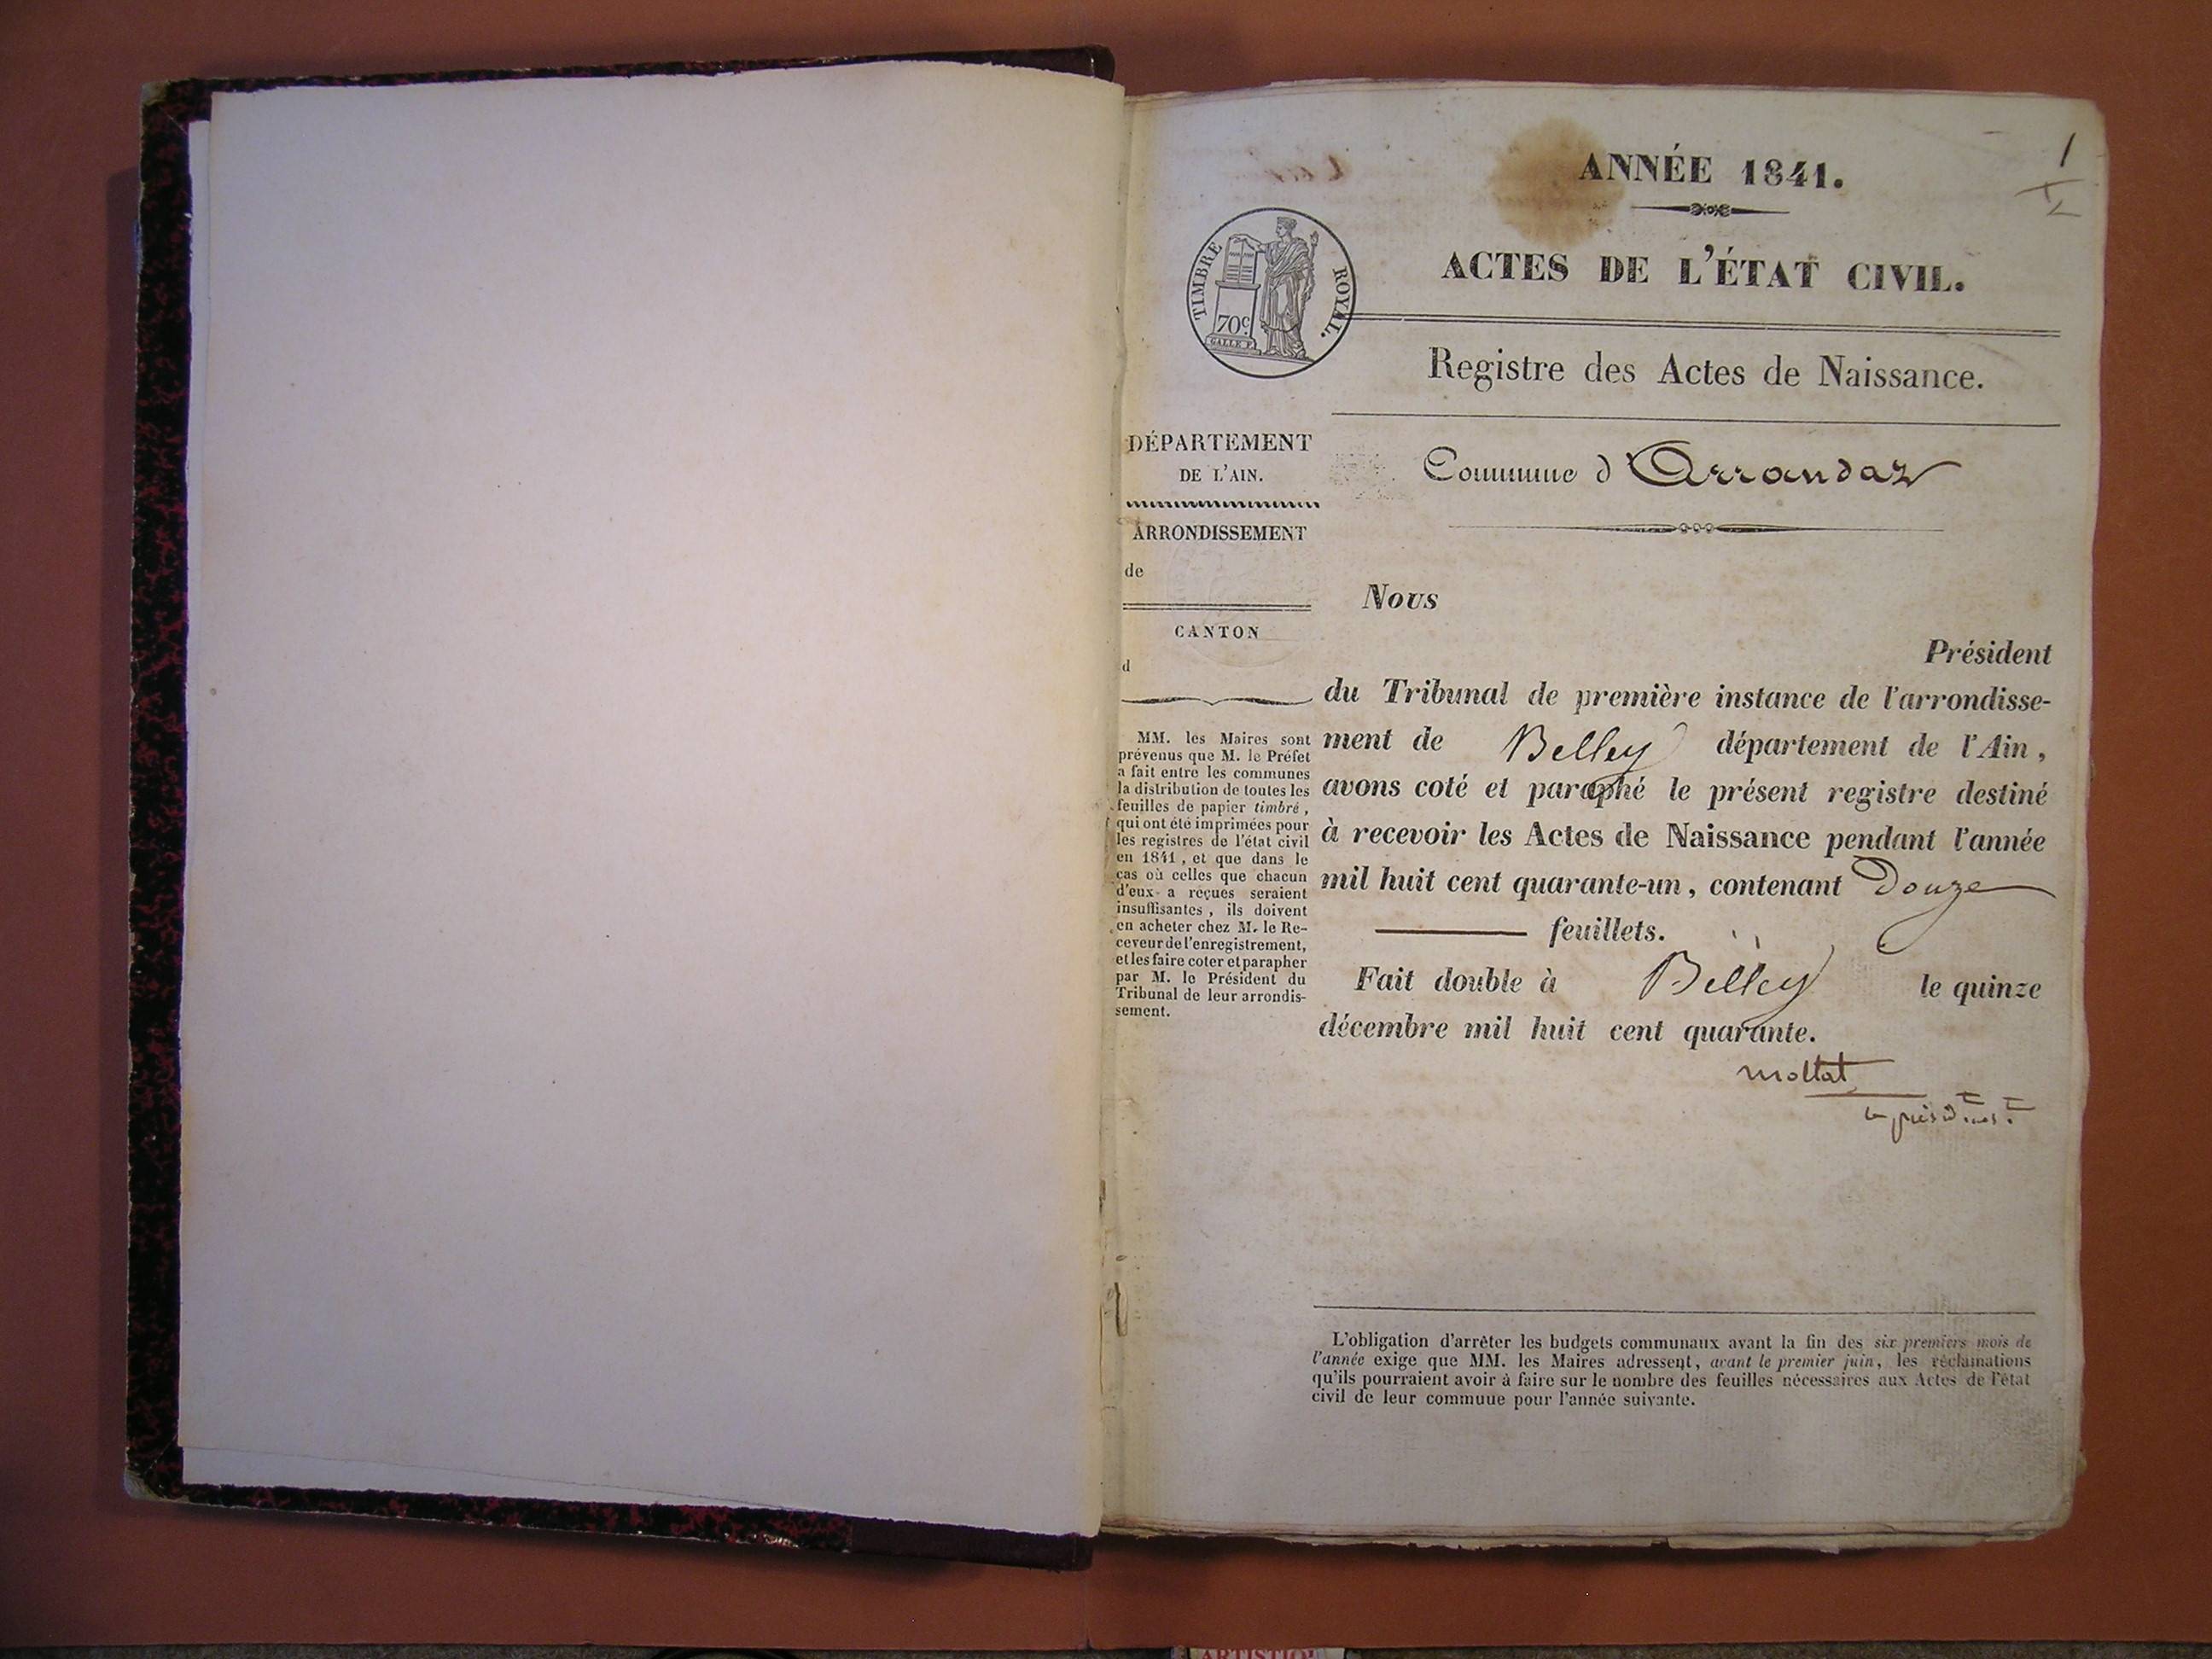 1
ANNÉE 1841.
ACTES DE L'ÉTAT CIVIL.
TIMBRE ROYAL.
70c
GALLE F.
Registre des Actes de Naissance.
DÉPARTEMENT
DE L'AIN.
ARRONDISSEMENT
de
CANTON
d
MM. les Maires sont
prévenus que M. le Préfet
a fait entre les communes
la distribution de toutes les
feuilles de papier timbré,
qui ont été imprimées pour
les registres de l'état civil
en 1841, et que dans le
cas où celles que chacun
d'eux a reçues seraient
insuffisantes, ils doivent
en acheter chez M. le Re-
ceveur de l'enregistrement,
et les faire coter et parapher
par M. le Président du
Tribunal de leur arrondis-
sement.
Commune d Arrandaz
Nous
Président
du Tribunal de première instance de l'arrondisse-
ment de Belley département de l'Ain,
avons coté et paraphé le présent registre destiné
à recevoir les Actes de Naissance pendant l'année
mil huit cent quarante-un, contenant Douze
feuillets.
Fait double à Belley le quinze
décembre mil huit cent quarante.
mollat
L'obligation d'arrêter les budgets communaux avant la fin des six premiers mois de
l'année exige que MM. les Maires adressent, avant le premier juin, les réclamations
qu'ils pourraient avoir à faire sur le nombre des feuilles nécessaires aux Actes de l'état
civil de leur commune pour l'année suivante.